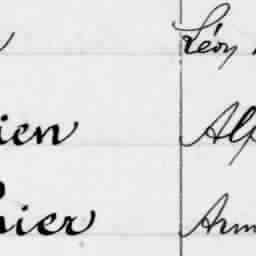 Léon
ien Alp
nier Arm